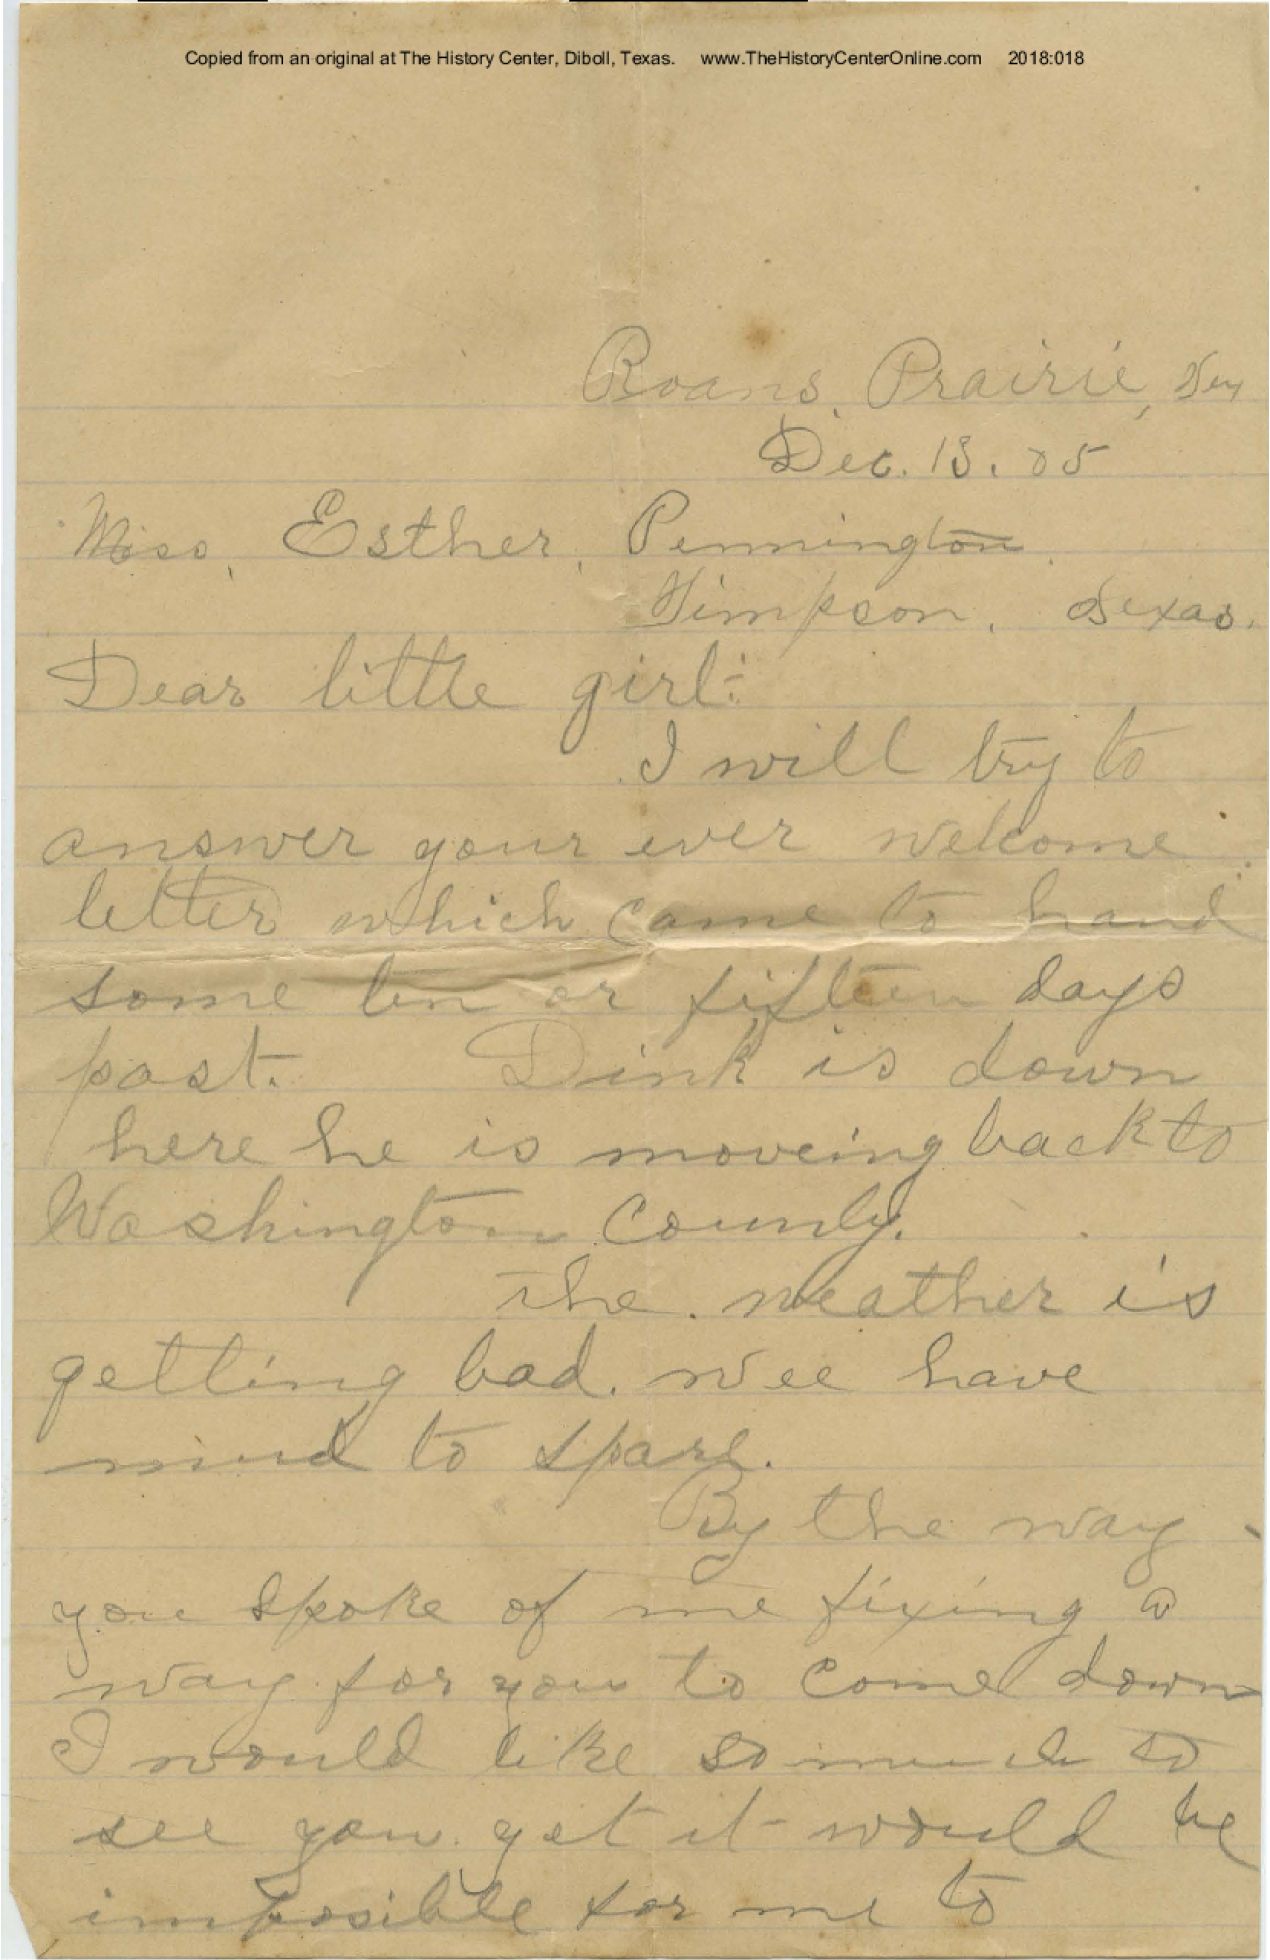 Copied from an original at The History Center, Diboll, Texas. www.TheHistoryCenterOnline.com 2018:018
Roans, Prairie, Tex
Dec. 13. 05
Miss, Esther, Pennington.
Timpson, Texas.
Dear little girl:
I will try to
answer your ever welcome
letter which came to hand
some ten or fifteen days
past. Dink is down
here he is moveing back to
Washington County.
The weather is
getting bad. wee have
mud to spare.
By the way
you spoke of me fixing a
way for you to come down
I would like so much to
see you yet it would be
imposible for me to